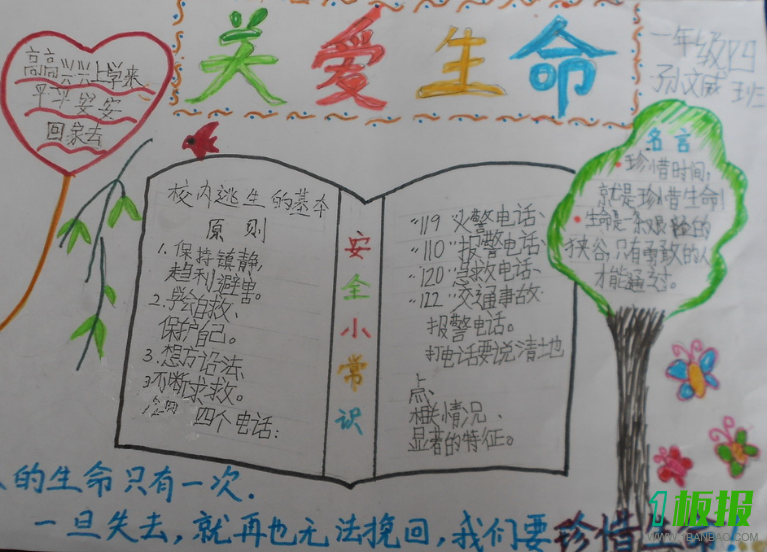 关爱生命
一年级四班
孙文
高高兴兴上学来
平平安安
回家去
名言
珍惜时间,
就是珍惜生命!
生命是一条艰险的
狭谷,只有勇敢的人
才能通过。
校内逃生的基本
原则
1.保持镇静,
趋利避害。
2.学会自救、
保护自己。
3.想方设法、
不断求救。
四个电话:
安全小常识
"119"火警电话、
"110"报警电话、
"120"急救电话、
"122"交通事故
报警电话。
打电话要说清地
点、
相关情况、
显著的特征。
的生命只有一次.
一旦失去,就再也无法挽回,我们要珍惜
1板报
WWW.1BANBAO.COM